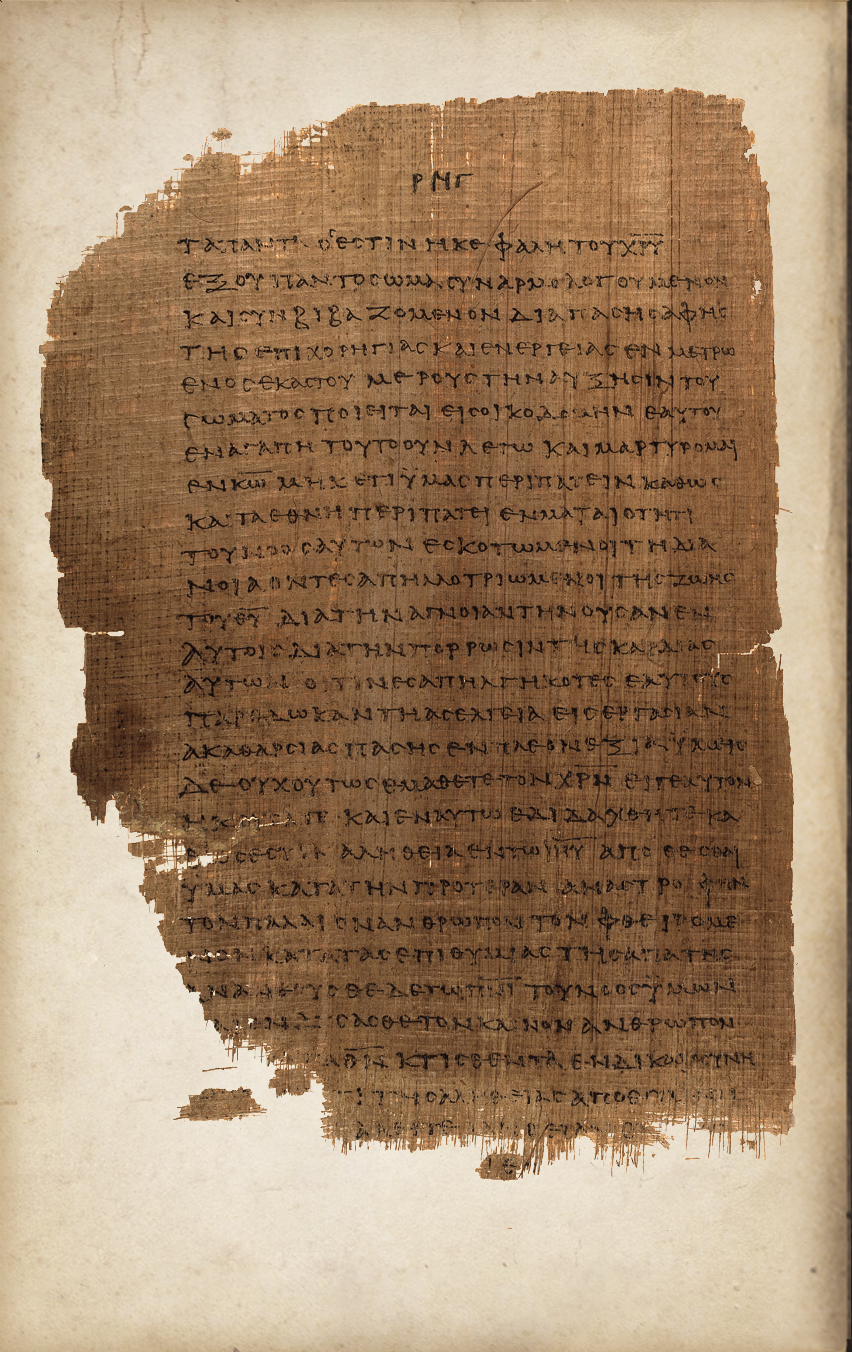 ΡΝΓ
ΤΑΠΑΝΤΑ ΟΕϹΤΙΝ ΗΚΕΦΑΛΗ ΤΟΥΧ̅Ρ̅Υ̅
ΕΞΟΥΠΑΝΤΟϹΩΜΑϹΥΝΑΡΜΟΛΟΓΟΥΜΕΝΟΝ
ΚΑΙϹΥΝΒΙΒΑΖΟΜΕΝΟΝ ΔΙΑΠΑϹΗϹΑΦΗϹ
ΤΗϹΕΠΙΧΟΡΗΓΙΑϹΚΑΙΕΝΕΡΓΕΙΑϹΕΝ ΜΕΤΡΩ
ΕΝΟϹΕΚΑϹΤΟΥ ΜΕΡΟΥϹΤΗΝΑΥΞΗϹΙΝΤΟΥ
ϹΩΜΑΤΟϹΠΟΙΕΙΤΑΙ ΕΙϹΟΙΚΟΔΟΜΗΝ ΕΑΥΤΟΥ
ΕΝΑΓΑΠΗ ΤΟΥΤΟΟΥΝΛΕΓΩ ΚΑΙΜΑΡΤΥΡΟΜΑΙ
ΕΝΚ̅Ω̅ ΜΗΚΕΤΙΫΜΑϹΠΕΡΙΠΑΤΕΙΝ ΚΑΘΩϹ
ΚΑΙΤΑΕΘΝΗ ΠΕΡΙΠΑΤΕΙ ΕΝΜΑΤΑΙΟΤΗΤΙ
ΤΟΥΝΟΟϹΑΥΤΩΝ ΕϹΚΟΤΩΜΕΝΟΙΤΗΔΙΑ
ΝΟΙΑΟΝΤΕϹΑΠΗΛΛΟΤΡΙΩΜΕΝΟΙ ΤΗϹΖΩΗϹ
ΤΟΥΘ̅Υ̅ ΔΙΑΤΗΝΑΓΝΟΙΑΝΤΗΝΟΥϹΑΝΕΝ
ΑΥΤΟΙϹ ΔΙΑΤΗΝΠΟΡΡΩϹΙΝΤΗϹΚΑΡΔΙΑϹ
ΑΥΤΩΝ ΟΙΤΙΝΕϹΑΠΗΛΓΗΚΟΤΕϹ ΕΑΥΤΟΥϹ
ΠΑΡΕΔΩΚΑΝΤΗΑϹΕΛΓΕΙΑ ΕΙϹΕΡΓΑϹΙΑΝ
ΑΚΑΘΑΡϹΙΑϹΠΑϹΗϹΕΝ ΠΛΕΟΝΕΞΙΑΫΜΕΙϹ
ΔΕ ΟΥΧΟΥΤΩϹΕΜΑΘΕΤΕΤΟΝΧ̅Ρ̅Ν̅ ΕΙΓΕΑΥΤΟΝ
ΗΚΟΥϹΑΤΕ ΚΑΙΕΝΑΥΤΩ ΕΔΙΔΑΧΘΗΤΕ ΚΑ
ΘΩϹΕϹΤΙΝ ΑΛΗΘΕΙΑΕΝΤΩΙ̅Η̅Υ̅ ΑΠΟΘΕϹΘΑΙ
ΫΜΑϹ ΚΑΤΑΤΗΝΠΡΟΤΕΡΑΝ ΑΝΑϹΤΡΟΦΗΝ
ΤΟΝΠΑΛΑΙΟΝΑΝΘΡΩΠΟΝ ΤΟΝ ΦΘΕΙΡΟΜΕ
ΝΟΝ ΚΑΤΑΤΑϹΕΠΙΘΥΜΙΑϹΤΗϹΑΠΑΤΗϹ
ΑΝΑΝΕΟΥϹΘΕ ΔΕΤΩΠ̅Ν̅Ι̅ ΤΟΥΝΟΟϹΫΜΩΝ
ϹΑϹΘΕΤΟΝΚΑΙΝΟΝ ΑΝΘΡΩΠΟΝ
ΚΤΙϹΘΕΝΤΑ ΕΝΔΙΚΑΙΟϹΥΝΗ
ΤΗϹΑΛΗΘΕΙΑϹ